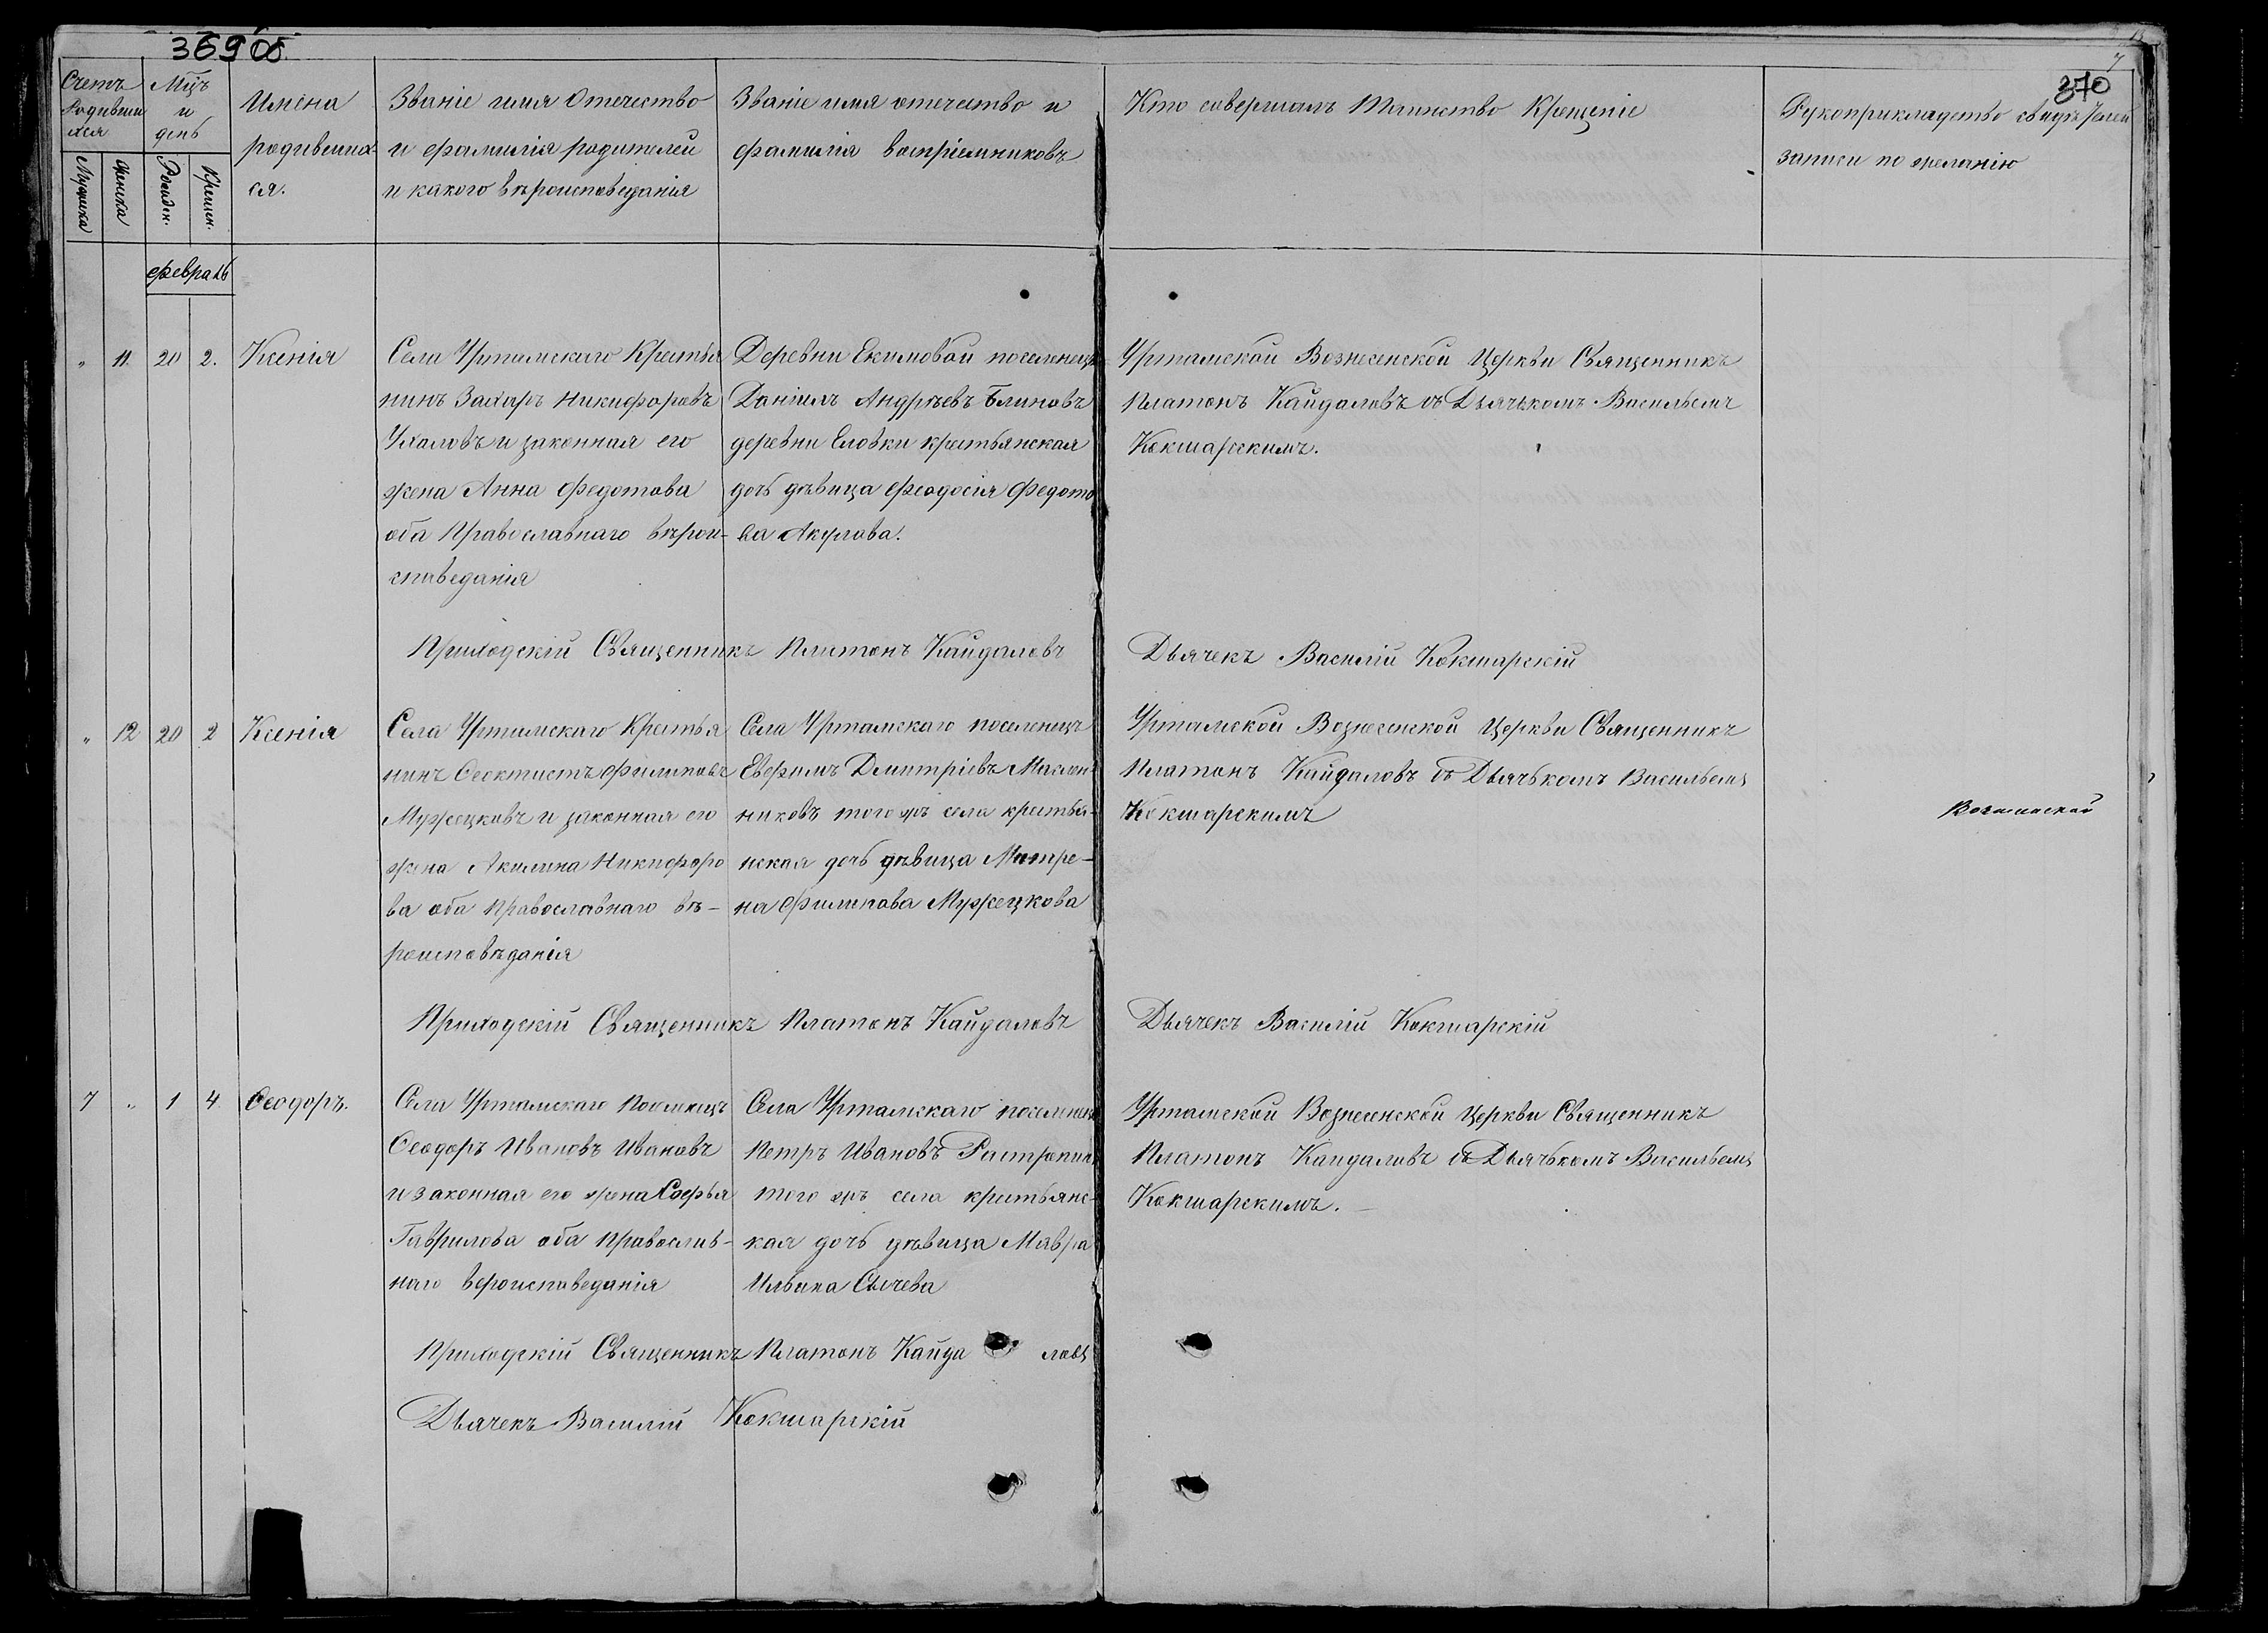 369 об.
370
7
Счетъ
Родивши
хся
Мцъ
и
день
Имена
родивших
ся.
Званіе имя Отечество
и фамилія родителей
и какого вѣроисповеданія
Званіе имя отечество и
фамилія воспріемниковъ
Кто совершалъ Таинство Крещеніе
Рукоприкладство свидѣтелей
записи по желанію
Мужска
Женска
Рожден.
Крещен.
февраль
„ 11. 20 2. Ксенія
Села Уртамскаго Крестья
нинъ Захаръ Никифоровъ
Ухаловъ и законная его
жена Анна Федотова
оба Православнаго вѣрои-
споведанія
Деревни Екимовой поселенецъ
Даніилъ Андрѣевъ Блиновъ
деревни Еловки крестьянская
дочь дѣвица Феодосія Федото
ва Акулова.
Уртамской Вознесенской Церкви Священникъ
Платонъ Кайдаловъ съ Дьячькомъ Васильемъ
Кокшарскимъ.
Приходскій Священникъ Платонъ Кайдаловъ
Дьячекъ Василій Кокшарскій
„ 12 20 2 Ксенія
Села Уртамскаго Крестья
нинъ Ѳеоктистъ Филиповъ
Мужецковъ и законная его
жена Акилина Никифоро
ва оба Православнаго вѣ-
роисповѣданія
Села Уртамскаго поселенецъ
Евфимъ Дмитріевъ Маслен
никовъ того жъ села крестья-
нская дочь дѣвица Матре-
на Филипова Мужецкова
Уртамской Вознесенской Церкви Священникъ
Платонъ Кайдаловъ съ Дьячькомъ Васильемъ
Кокшарскимъ
Приходскій Священникъ Платонъ Кайдаловъ
Дьячекъ Василій Кокшарскій
7 „ 1 4 Ѳеодоръ.
Села Уртамскаго Поселенецъ
Ѳеодоръ Ивановъ Ивановъ
и законная его жена Софья
Гаврилова оба Православ-
наго вероисповеданія
Села Уртамскаго поселенецъ
Петръ Ивановъ Растропин
того жъ села крестьянс-
кая дочь дѣвица Мавра
Ильина Сычева
Уртамской Вознесенской Церкви Священникъ
Платонъ Кайдаловъ съ Дьячькомъ Васильемъ
Кокшарскимъ.
Приходскій Священникъ Платонъ Кайда ловъ
Дьячекъ Василій Кокшарскій